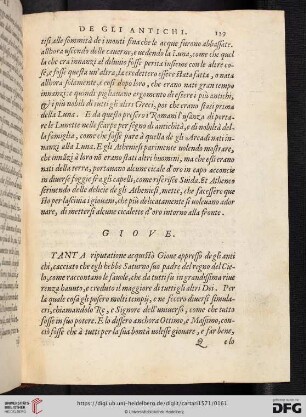 DE GLI ANTICHI. 133
tisi alle sommità de i monti fin che le acque furono abbassate.
allhora uscendo delle cauerne, e uedendo la Luna, come che quel
la che era innanzi al diluuio fosse perita insieme con le altre co-
se, e fosse questa un'altra, la credettero essere stata fatta, o nata
allhora solamente, e cosi dopo loro, che erano nati gran tempo
innanzi: e quindi pigliarono argomento di essere i più antichi,
& i più nobili di tutti gli altri Greci, poi che erano stati prima
della Luna. E da questo presero i Romani l'usanza di porta-
re le Lunette nelle scarpe per segno di antichità, e di nobiltà del
la famiglia, come che fosse pare à quella de gli Arcadi nati in-
nanzi alla Luna. E gli Atheniesi parimente uolendo mostrare,
che innãzi à loro nõ erano stati altri huomini, ma che essi erano
nati della terra, portauano alcune cicale d'oro in capo acconcie
in diuerse foggie fra gli capelli, come riferisce Suida. Et Atheneo
scriuendo delle delicie de gli Atheniesi, mette, che facessero que
sto per lasciuia i giouani, che più delicatamente si uoleuano ador
nare, di mettersi alcune cicalette d'oro intorno alla fronte.
GIOVE.
TANTA riputatione acquistò Gioue appresso de gli anti
chi, cacciato che egli hebbe Saturno suo padre del regno del Cie-
lo, come raccontano le fauole, che da tutti fu in grandissima riue
renza hauuto, e creduto il maggiore di tutti gli altri Dei. Per
la quale cosa gli posero molti tempij, e ne fecero diuersi simula-
cri, chiamandolo Re, e Signore dell'uniuerso, come che tutto
fosse in suo potere. E lo dissero anchora Ottimo, e Massimo, con
ciò fosse che à tutti per la sua bontà uolesse giouare, e far bene,
Q e lo
https://digi.ub.uni-heidelberg.de/diglit/cartari1571/0161
© Universitätsbibliothek Heidelberg
UNIVERSITÄTS-
BIBLIOTHEK
HEIDELBERG
gefördert durch die
DFG